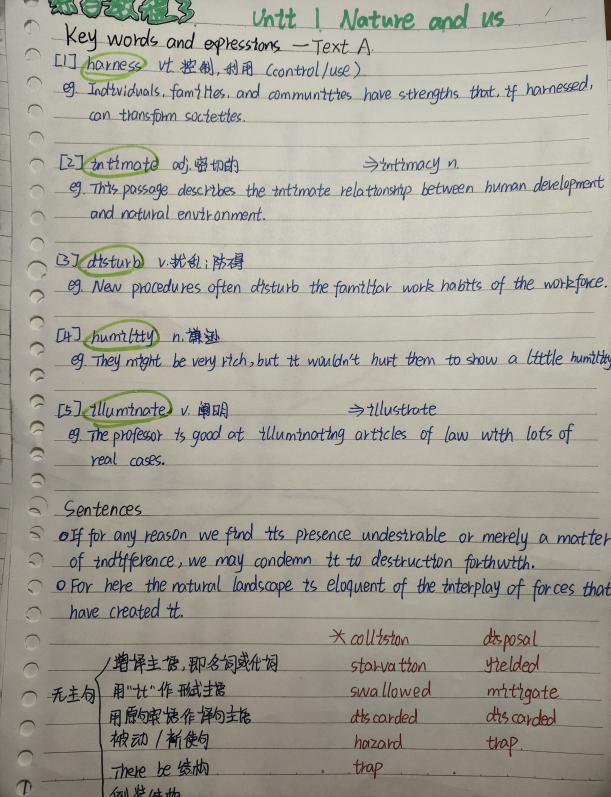 综合教程3
Unit 1 Nature and us
Key words and expressions — Text A.
[1] harness vt. 控制, 利用 (control/use)
eg. Individuals, families, and communities have strengths that, if harnessed,
can transform societies.
[2] intimate adj. 密切的 ⇒ intimacy n.
eg. This passage describes the intimate relationship between human development
and natural environment.
[3] disturb v. 扰乱; 防碍
eg. New procedures often disturb the familiar work habits of the workforce.
[4] humility n. 谦逊
eg. They might be very rich, but it wouldn't hurt them to show a little humility
[5] illuminate v. 阐明 ⇒ illustrate
eg. The professor is good at illuminating articles of law with lots of
real cases.
Sentences
If for any reason we find its presence undesirable or merely a matter
of indifference, we may condemn it to destruction forthwith.
For here the natural landscape is eloquent of the interplay of forces that
have created it.
* collision disposal
增译主语, 即名词或代词 starvation yielded
无主句 用"it"作形式主语 swallowed mitigate
用原句宾语作译句主语 discarded discarded
被动/祈使句 hazard trap
There be 结构 trap
倒装结构